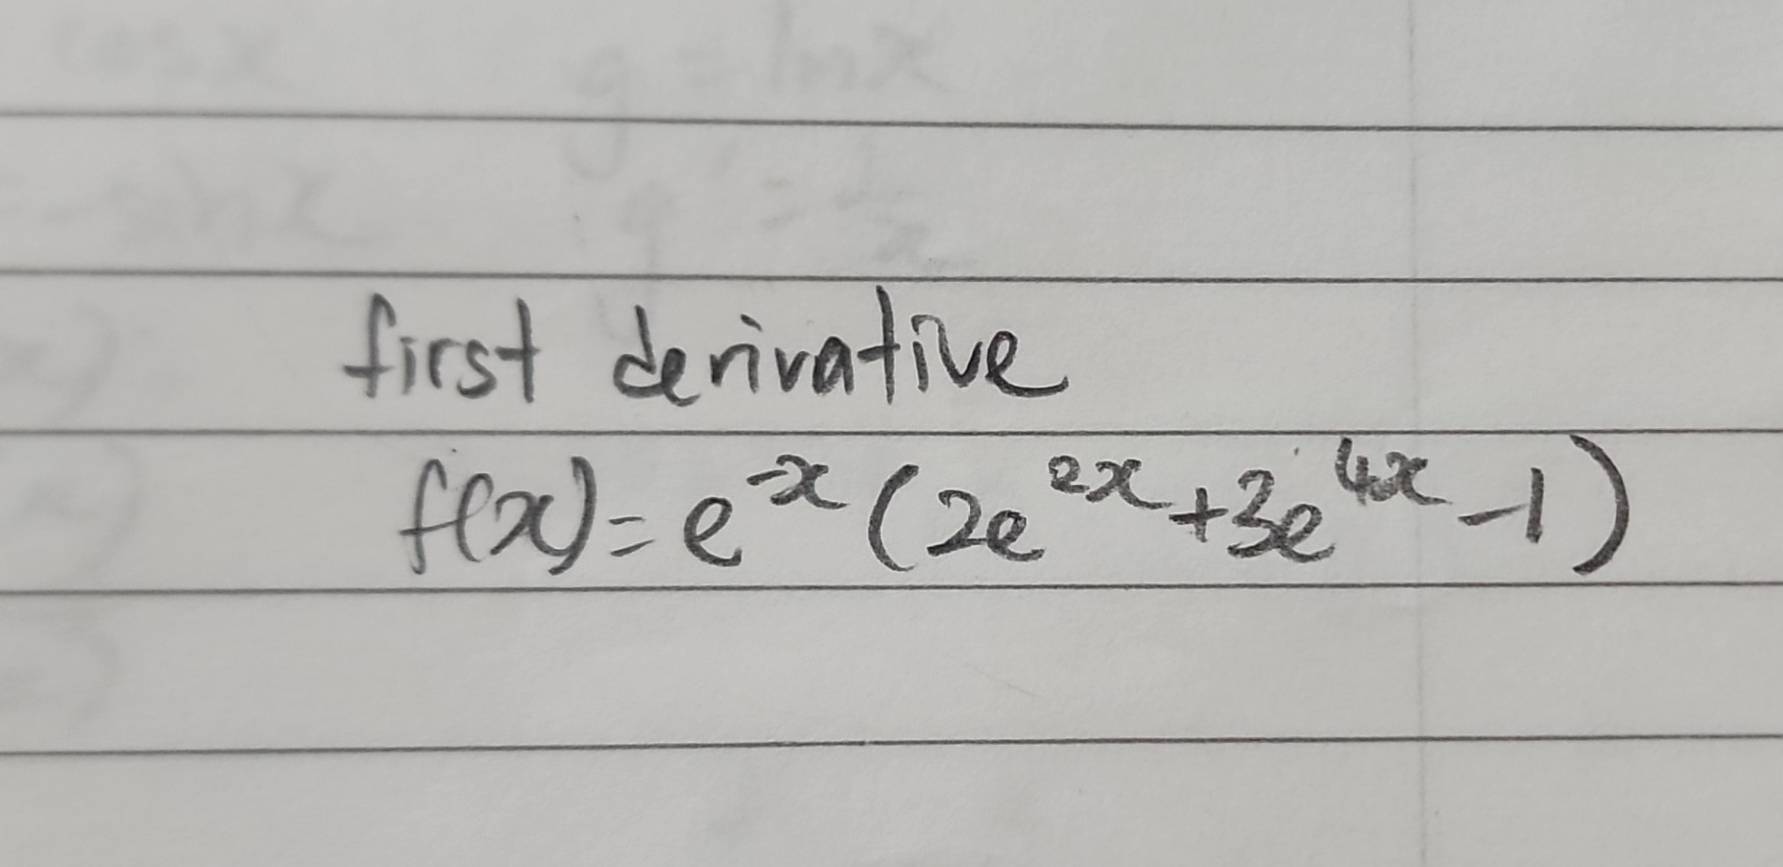 first derivative
f(x) = e^{-x} (2e^{2x} + 3e^{4x} - 1)